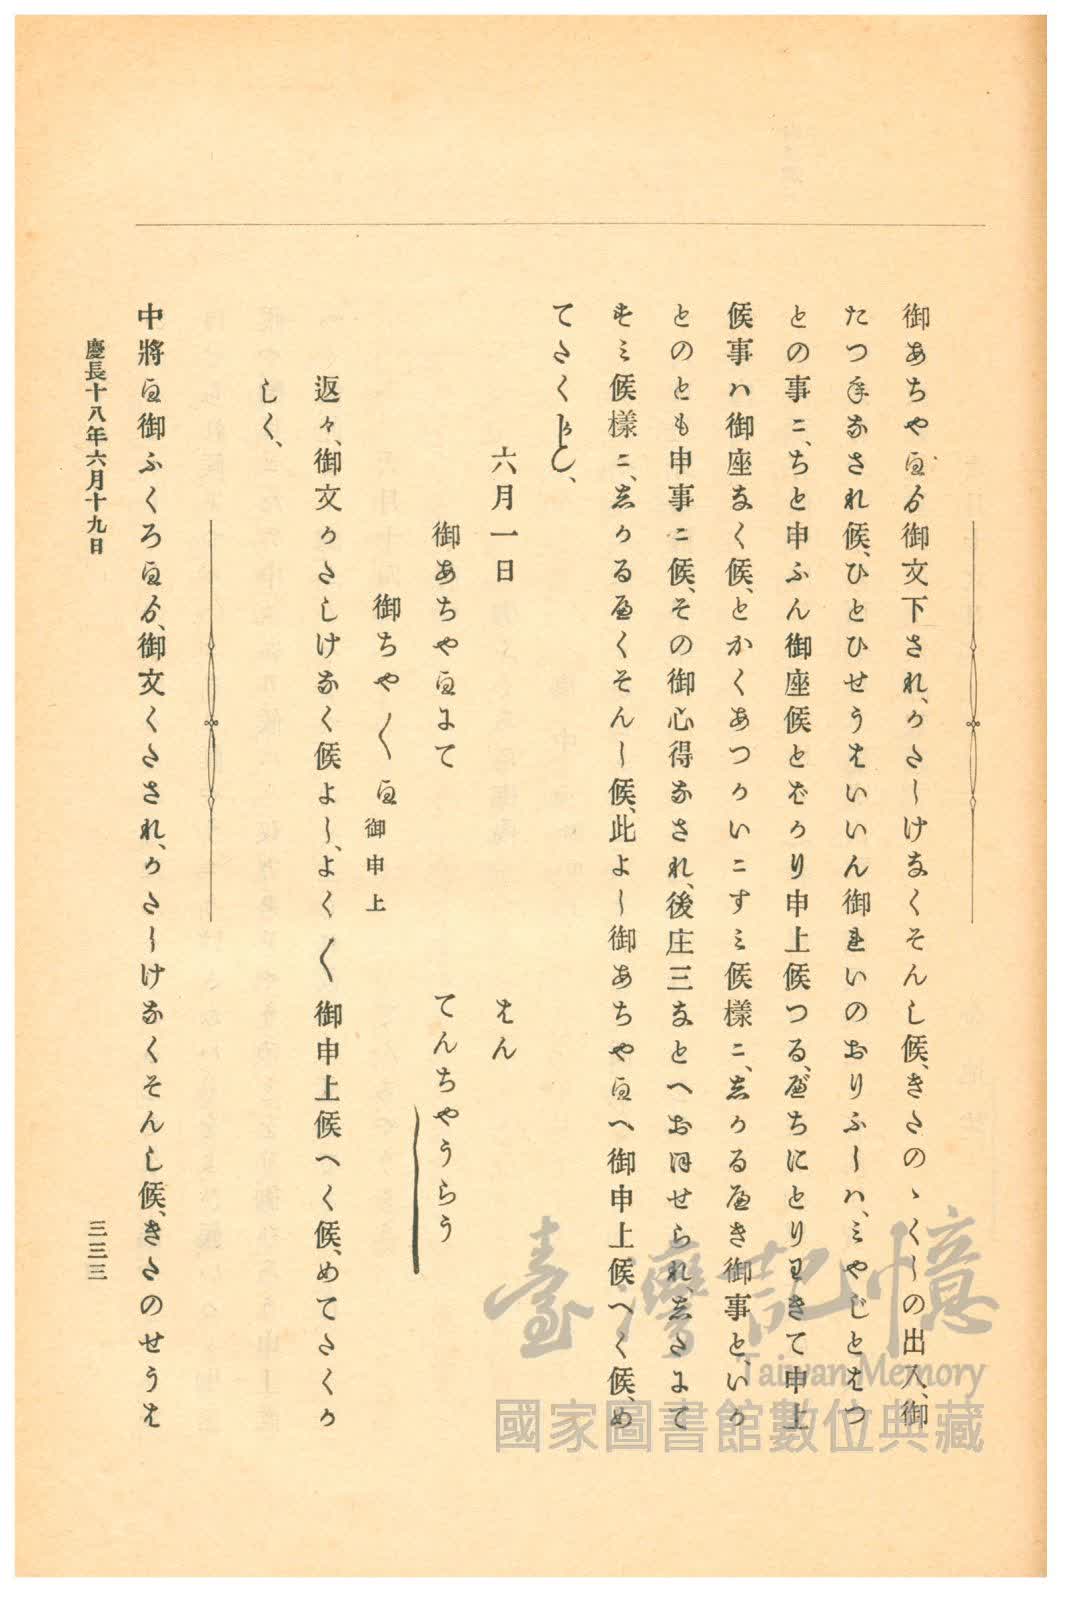 御あちや㔟ゟ御文下され、かたしけなくそんし候、きたのゝくしの出入、御
たつ年なされ候、ひとひせうはいいん御れいのおりふしハ、ミやじとはつ
との事ニ、ちと申ふん御座候とばかり申上候つる、べちにとりわきて申上
候事ハ御座なく候、とかくあつかいニすミ候様ニ、志かるべき御事と、いか
とのとも申事ニ候、その御心得なされ、後庄三なとへおほせられ、志たにて
すミ候様ニ、志かるべくそんし候、此よし御あちや㔟へ御申上候へく候、め
てたくかしく、
六月一日
はん
御あちや㔟にて
てんちやうらう
御ちや〳〵㔟
御申上
返々、御文かたしけなく候よし、よく〳〵御申上候へく候、めてたくか
しく、
中將㔟御ふくろ㔟ゟ、御文くたされ、かたしけなくそんし候、きたのせうは
慶長十八年六月十九日
三三三
臺灣記憶
Taiwan Memory
國家圖書館數位典藏